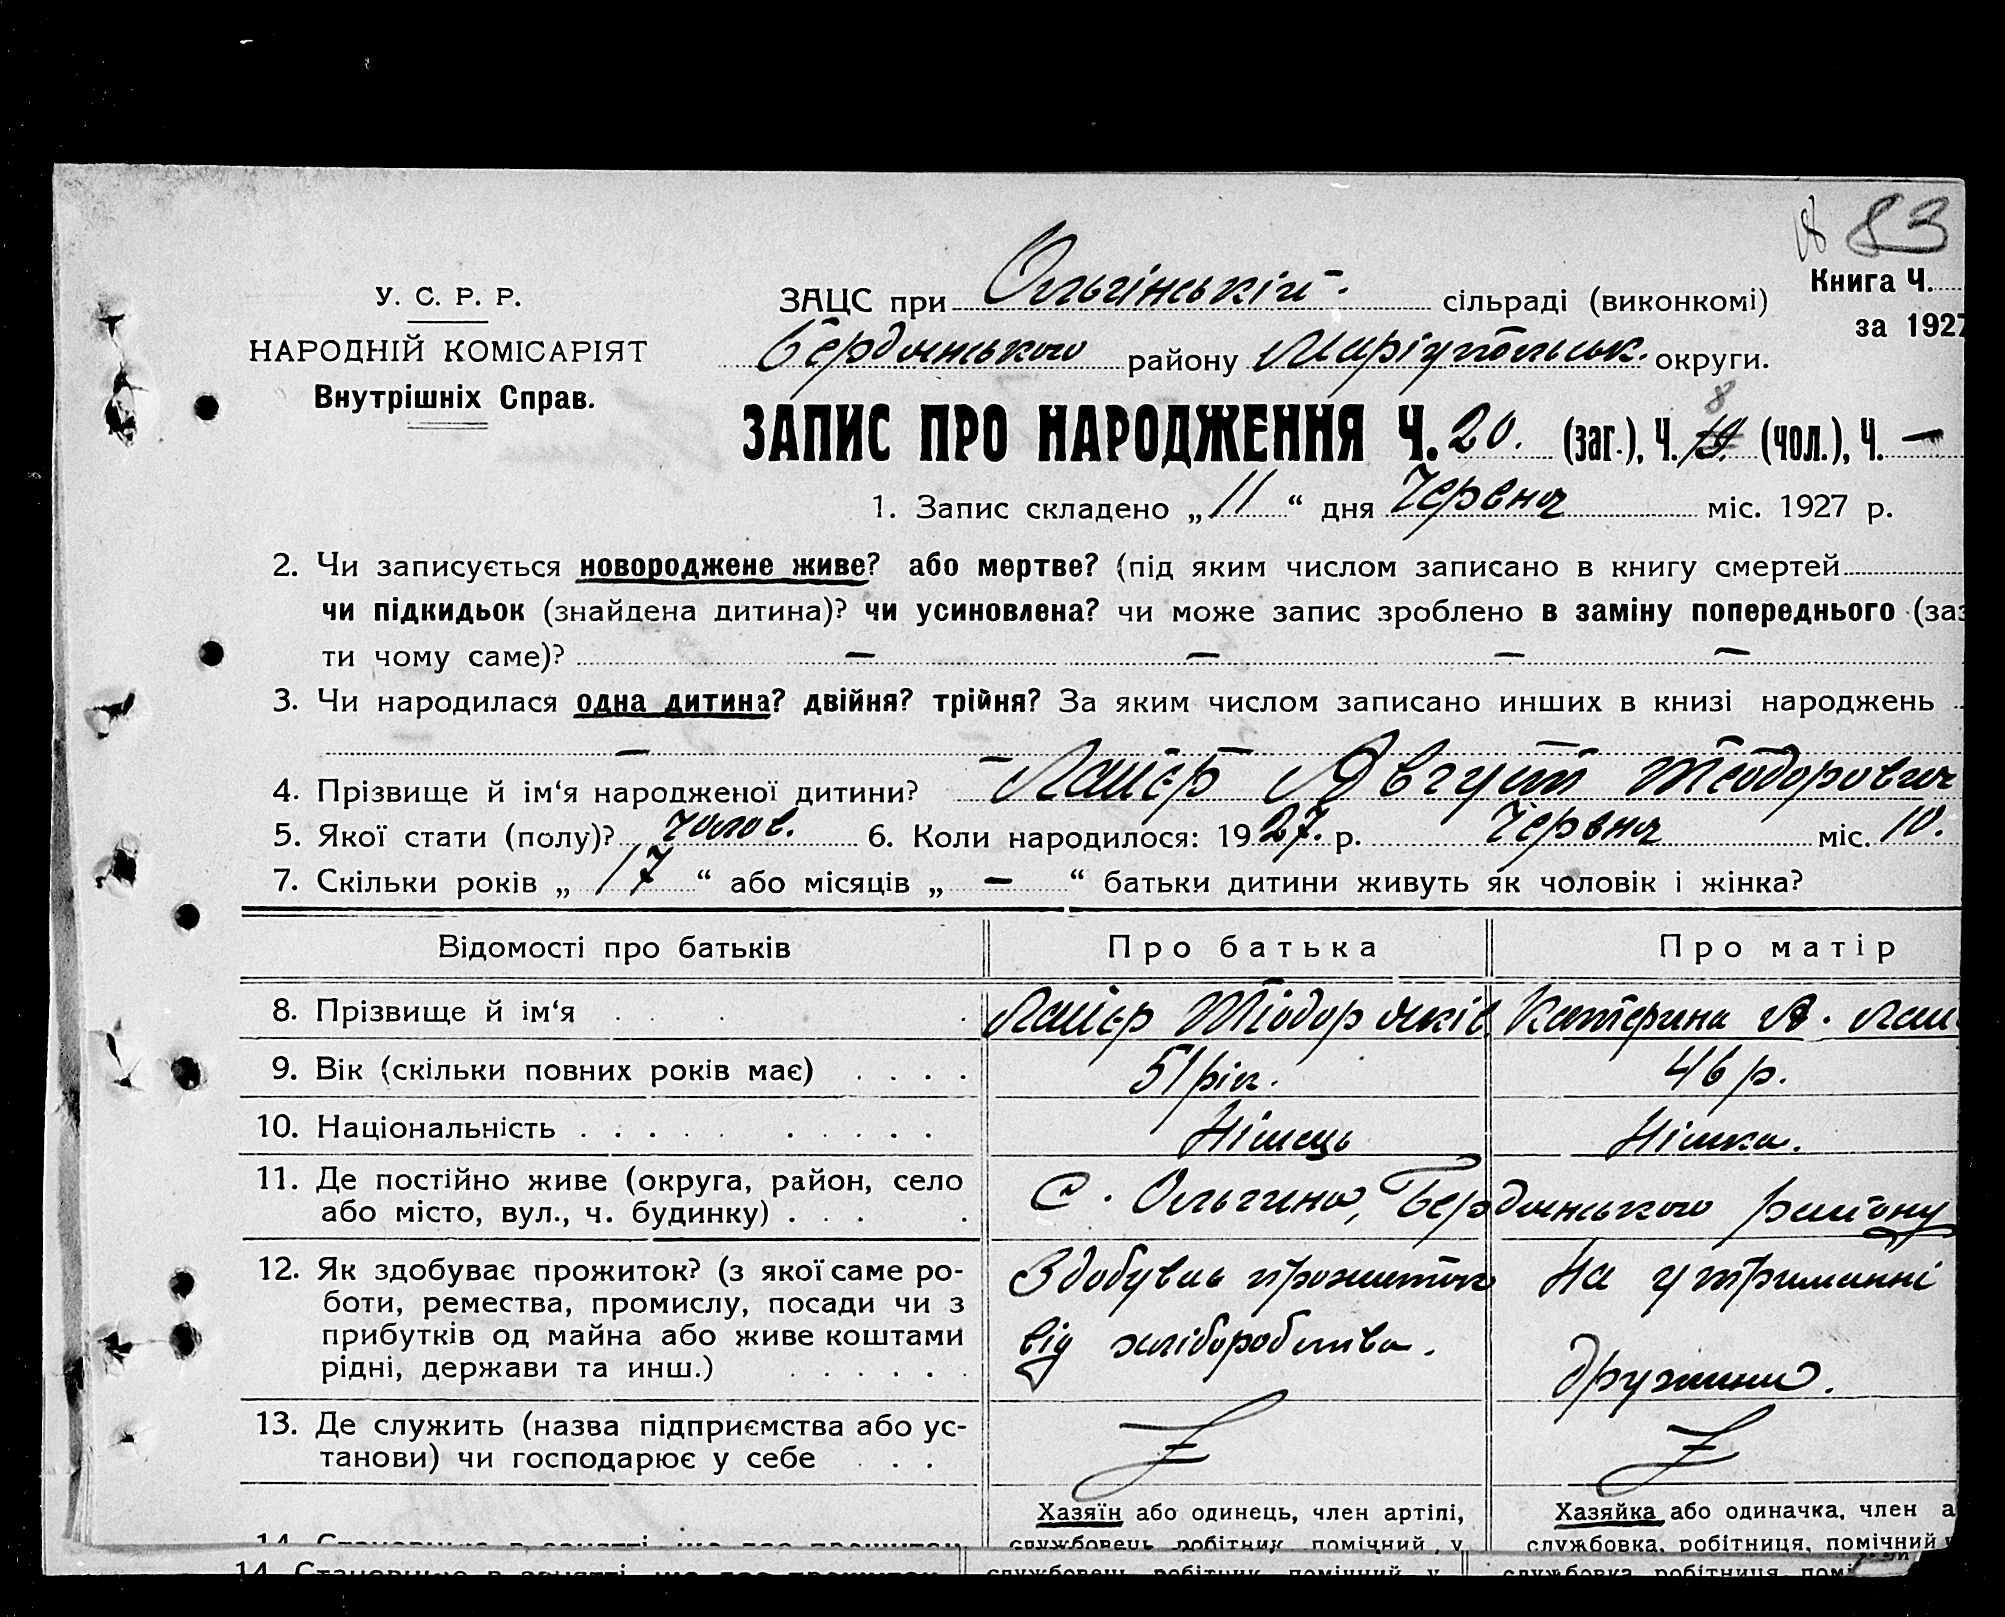 83
У. С. Р. Р.
НАРОДНІЙ КОМІСАРІЯТ
Внутрішніх Справ.
Книга Ч.
за 1927
ЗАЦС при Ольгінській сільраді (виконкомі)
району Маріупольськ. округи.
ЗАПИС ПРО НАРОДЖЕННЯ Ч. 20. (заг.), Ч. 8 (чол.), Ч. —
1. Запис складено „ 11 “ дня Червня міс. 1927 р.
2. Чи записується новороджене живе? або мертве? (під яким числом записано в книгу смертей
чи підкидьок (знайдена дитина)? чи усиновлена? чи може запис зроблено в заміну попереднього (заз
ти чому саме)? — — — —
3. Чи народилася одна дитина? двійня? трійня? За яким числом записано инших в книзі народжень
— —
4. Прізвище й ім‘я народженої дитини? Лашер Август Теодорович
5. Якої стати (полу)? чолов. 6. Коли народилося: 1927. р. Червня міс. 10.
7. Скільки років „ 17 “ або місяців „ — “ батьки дитини живуть як чоловік і жінка?
Відомості про батьків Про батька Про матір
8. Прізвище й ім‘я Лашер Тіодор Яків Катерина А. Лаш
9. Вік (скільки повних років має) 51 рік. 46 р.
10. Національність Німець Німка.
11. Де постійно живе (округа, район, село
або місто, вул., ч. будинку)
С. Ольгино, району
12. Як здобуває прожиток? (з якої саме ро-
боти, ремества, промислу, посади чи з
прибутків од майна або живе коштами
рідні, держави та инш.)
Здобував прожиток
від хліборобства.
На утриманні
дружини.
13. Де служить (назва підприємства або ус-
танови) чи господарює у себе
Хазяїн або одинець, член артілі,
службовець робітник помічний у
Хазяйка або одиначка, член а
службовка, робітниця, помічний
14. Становище в занятті, що дає прожиток
службовець робітник помічний у
службовка робітниця помі